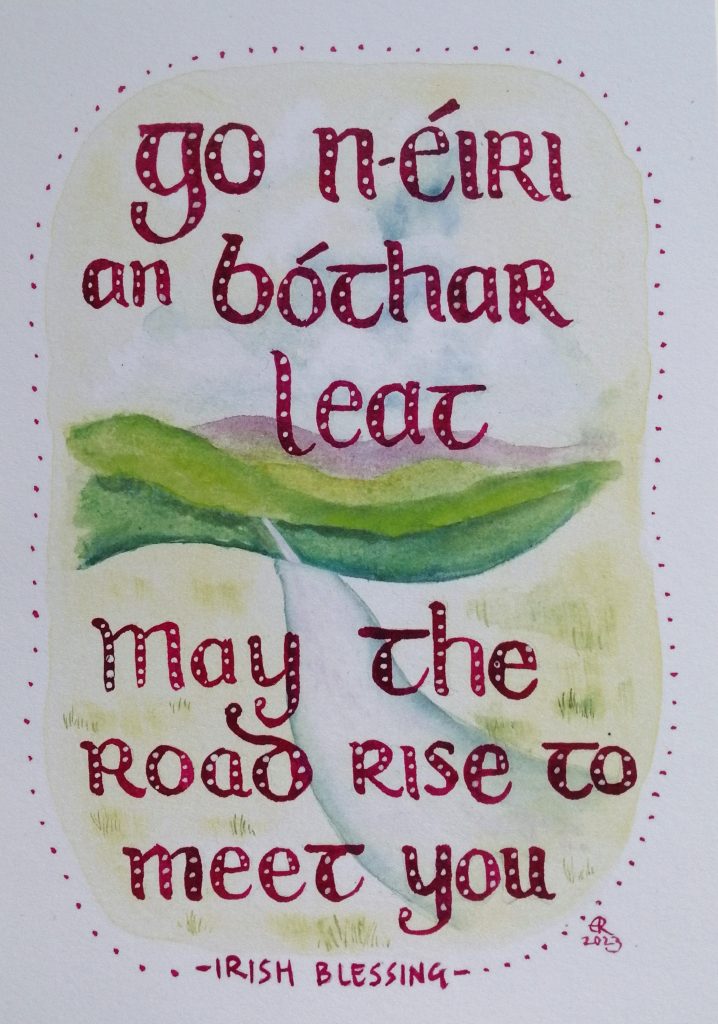 go n-éiri
an bóthar
leat
May the
road rise to
meet you
-IRISH BLESSING-
ER
2023